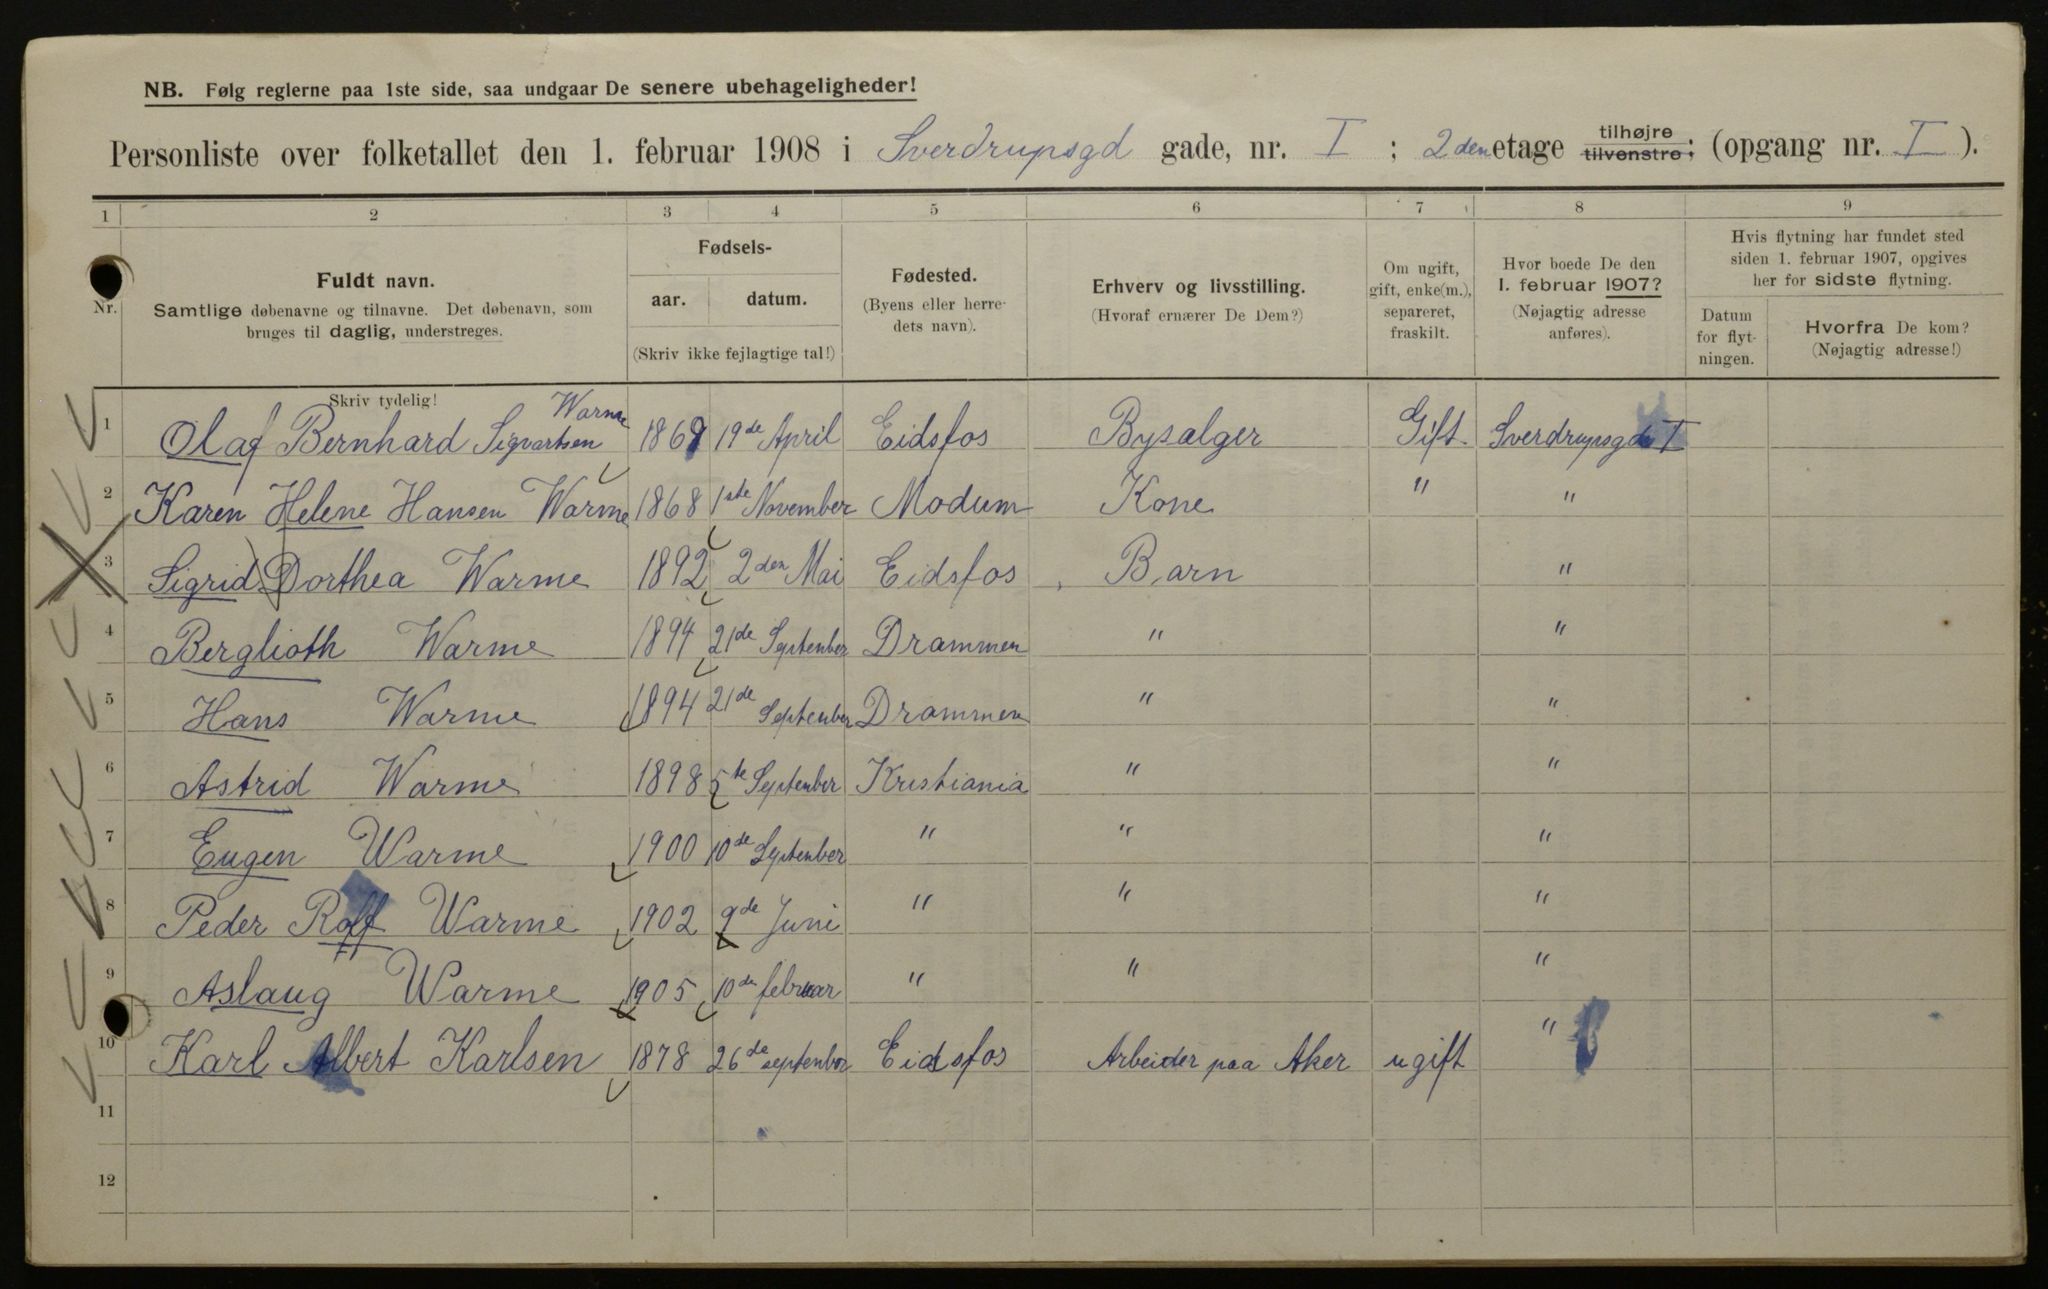 NB. Følg reglerne paa 1ste side, saa undgaar De senere ubehageligheder!
Personliste over folketallet den 1. februar 1908 i Sverdrupsgd gade, nr. I ; 2den etage tilhøjre tilvenstre; (opgang nr. I ).
1 2 3 4 5 6 7 8 9
Nr.
Fuldt navn.
Samtlige døbenavne og tilnavne. Det døbenavn, som
bruges til daglig, understreges.
Fødsels-
aar. datum.
(Skriv ikke fejlagtige tal!)
Fødested.
(Byens eller herre-
dets navn).
Erhverv og livsstilling.
(Hvoraf ernærer De Dem?)
Om ugift,
gift, enke(m.),
separeret,
fraskilt.
Hvor boede De den
1. februar 1907?
(Nøjagtig adresse
anføres).
Hvis flytning har fundet sted
siden 1. februar 1907, opgives
her for sidste flytning.
Datum
for flyt-
ningen.
Hvorfra De kom?
(Nøjagtig adresse!)
Skriv tydelig!
Warme
1 Olaf Bernhard Sigvartsen 1869 19de April Eidsfos Bysælger Gift Sverdrupsgd I
2 Karen Helene Hansen Warme 1868 1ste November Modum Kone " "
3 Sigrid Dorthea Warme 1892 2den Mai Eidsfos Barn "
4 Berglioth Warme 1894 21de September Drammen " "
5 Hans Warme 1894 21de September Drammen " "
6 Astrid Warme 1898 5te September Kristiania " "
7 Eugen Warme 1900 10de September " " "
8 Peder Rolf Warme 1902 9de Juni " " "
9 Aslaug Warme 1905 10de februar " " "
10 Karl Albert Karlsen 1878 26de september Eidsfos Arbeider paa Aker ugift "
11
12